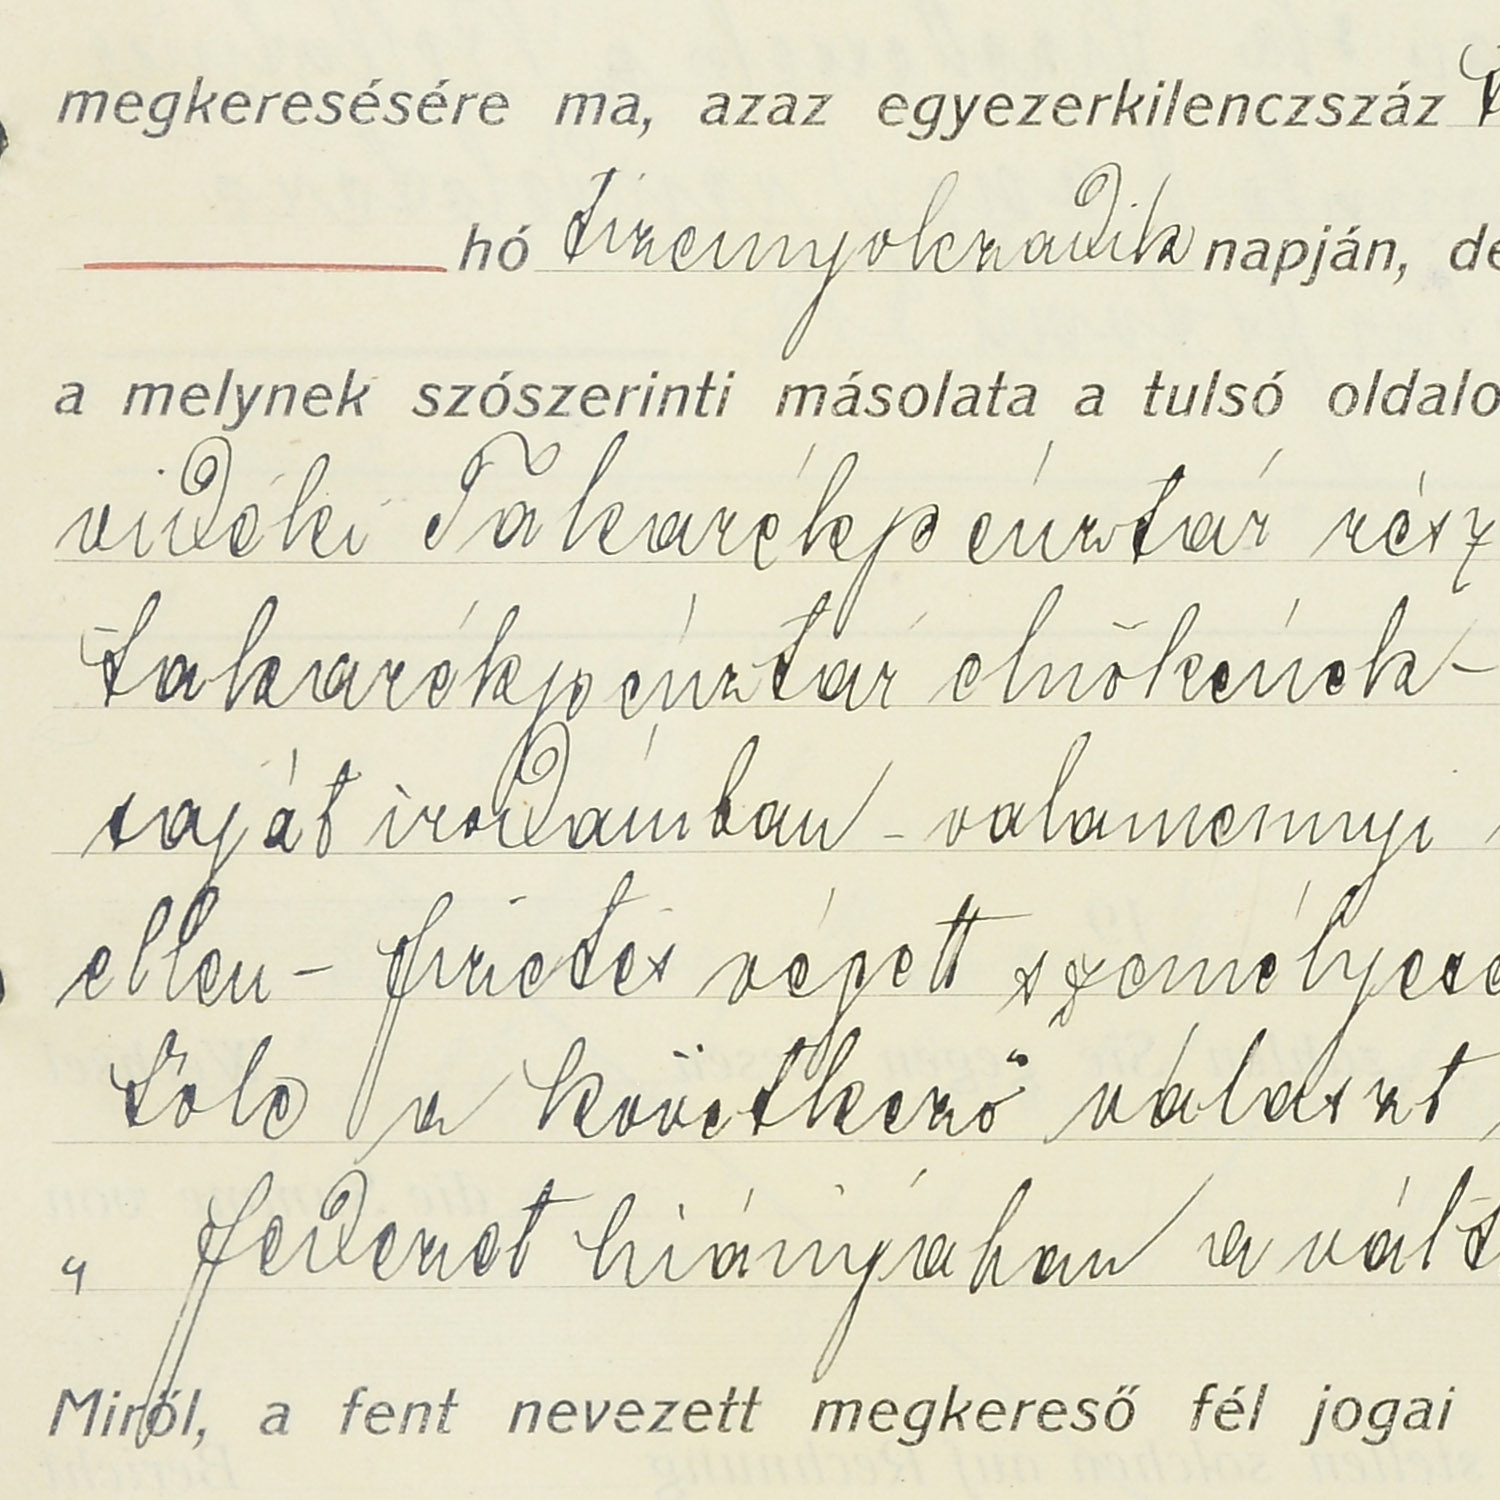 megkeresésére ma, azaz egyezerkilenczszáz
hó tizennyolczadik napján, de
a melynek szószerinti másolata a tulsó oldalo
vidéki Takarékpénztár rész
takarékpénztár elnökének -
saját irodámban - valamennyi
ellen - fizetés végett személyese
tőle a következő választ
„ fedezet hiányában a vált
Miről, a fent nevezett megkereső fél jogai